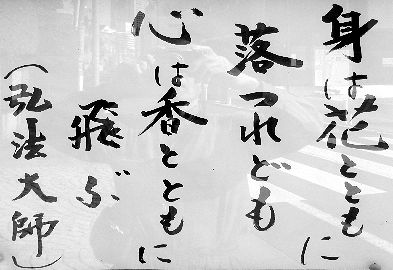 身は花とともに
落つれども
心は香とともに
飛ぶ
(弘法大師)